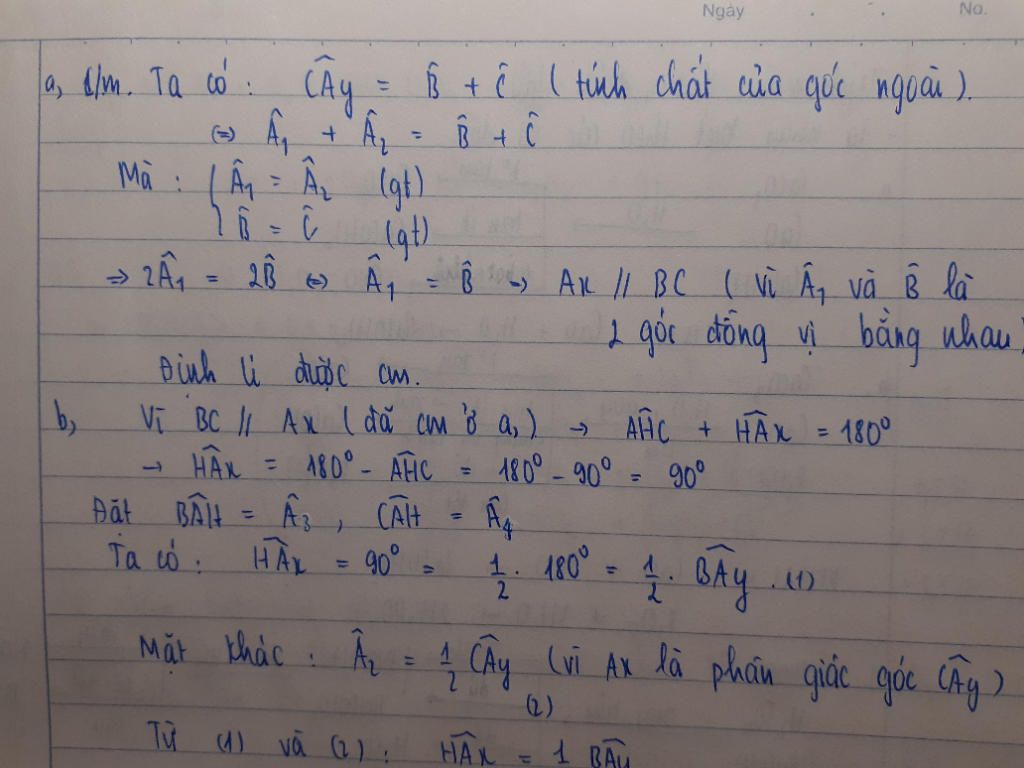 Ngày . . No.
a, c/m. Ta có: CÂy = B̂ + Ĉ (tính chất của góc ngoài).
⇔ Â₁ + Â₂ = B̂ + Ĉ
Mà : { Â₁ = Â₂ (gt)
B̂ = Ĉ (gt)
⇒ 2Â₁ = 2B̂ ⇔ Â₁ = B̂ → Ax // BC (vì Â₁ và B̂ là
2 góc đồng vị bằng nhau)
Định lí được cm.
b, Vì BC // Ax (đã cm ở a,) → AĤC + HÂx = 180⁰
→ HÂx = 180⁰ - AĤC = 180⁰ - 90⁰ = 90⁰
Đặt BÂH = Â₃ , CÂH = Â₄
Ta có : HÂx = 90⁰ = 1/2 . 180⁰ = 1/2 . BÂy . (1)
Mặt khác : Â₂ = 1/2 CÂy (vì Ax là phân giác góc CÂy)
(2)
Từ (1) và (2) : HÂx = 1 BÂy